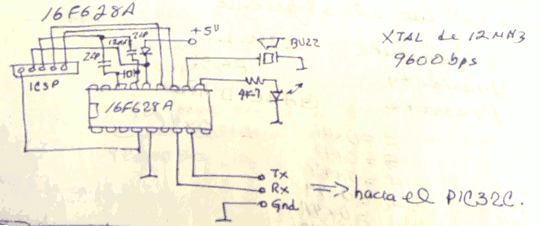 16F628A
+5V
22p
22p
12MHz
10K
ICSP
16F628A
BUZZ
4K7
XTAL de 12MHz
9600bps
Tx
Rx
Gnd
⇒ hacia el PIC32C.